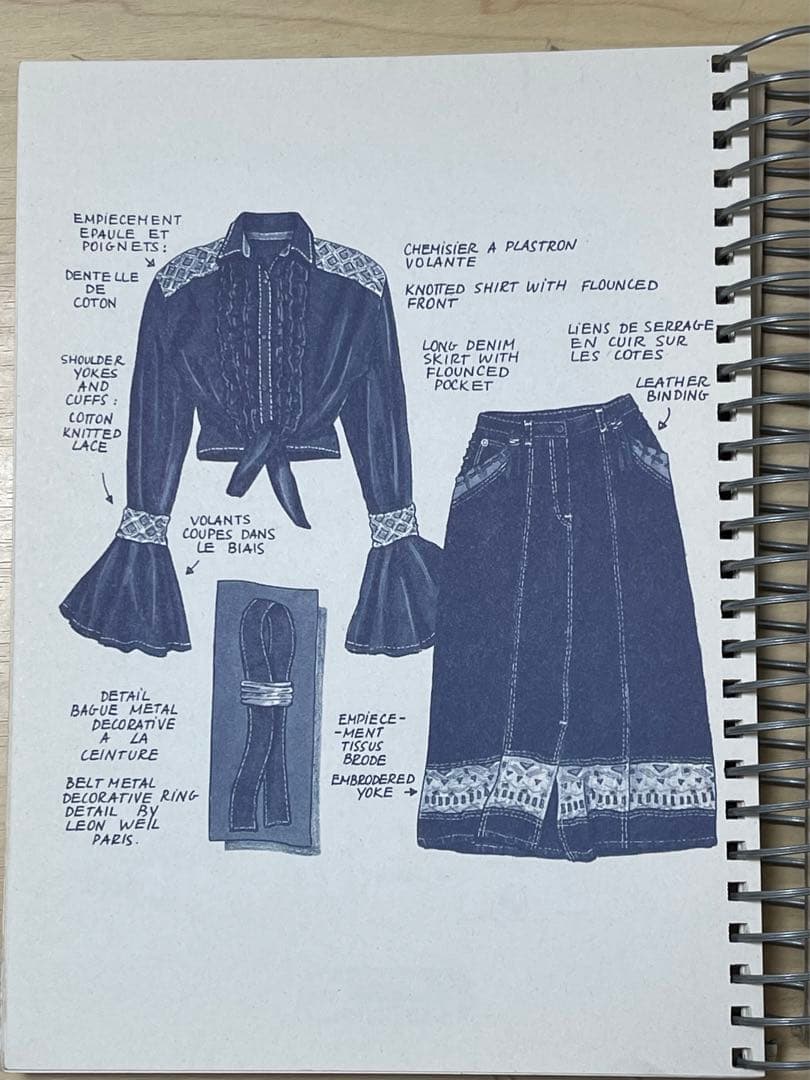 EMPIECEMENT
EPAULE ET
POIGNETS:
DENTELLE
DE
COTON
SHOULDER
YOKES
AND
CUFFS:
COTTON
KNITTED
LACE
CHEMISIER A PLASTRON
VOLANTE
KNOTTED SHIRT WITH FLOUNCED
FRONT
LONG DENIM
SKIRT WITH
FLOUNCED
POCKET
LIENS DE SERRAGE
EN CUIR SUR
LES COTES
LEATHER
BINDING
VOLANTS
COUPES DANS
LE BIAIS
DETAIL
BAGUE METAL
DECORATIVE
A LA
CEINTURE
BELT METAL
DECORATIVE RING
DETAIL BY
LEON WEIL
PARIS.
EMPIECE-
-MENT
TISSUS
BRODE
EMBRODERED
YOKE